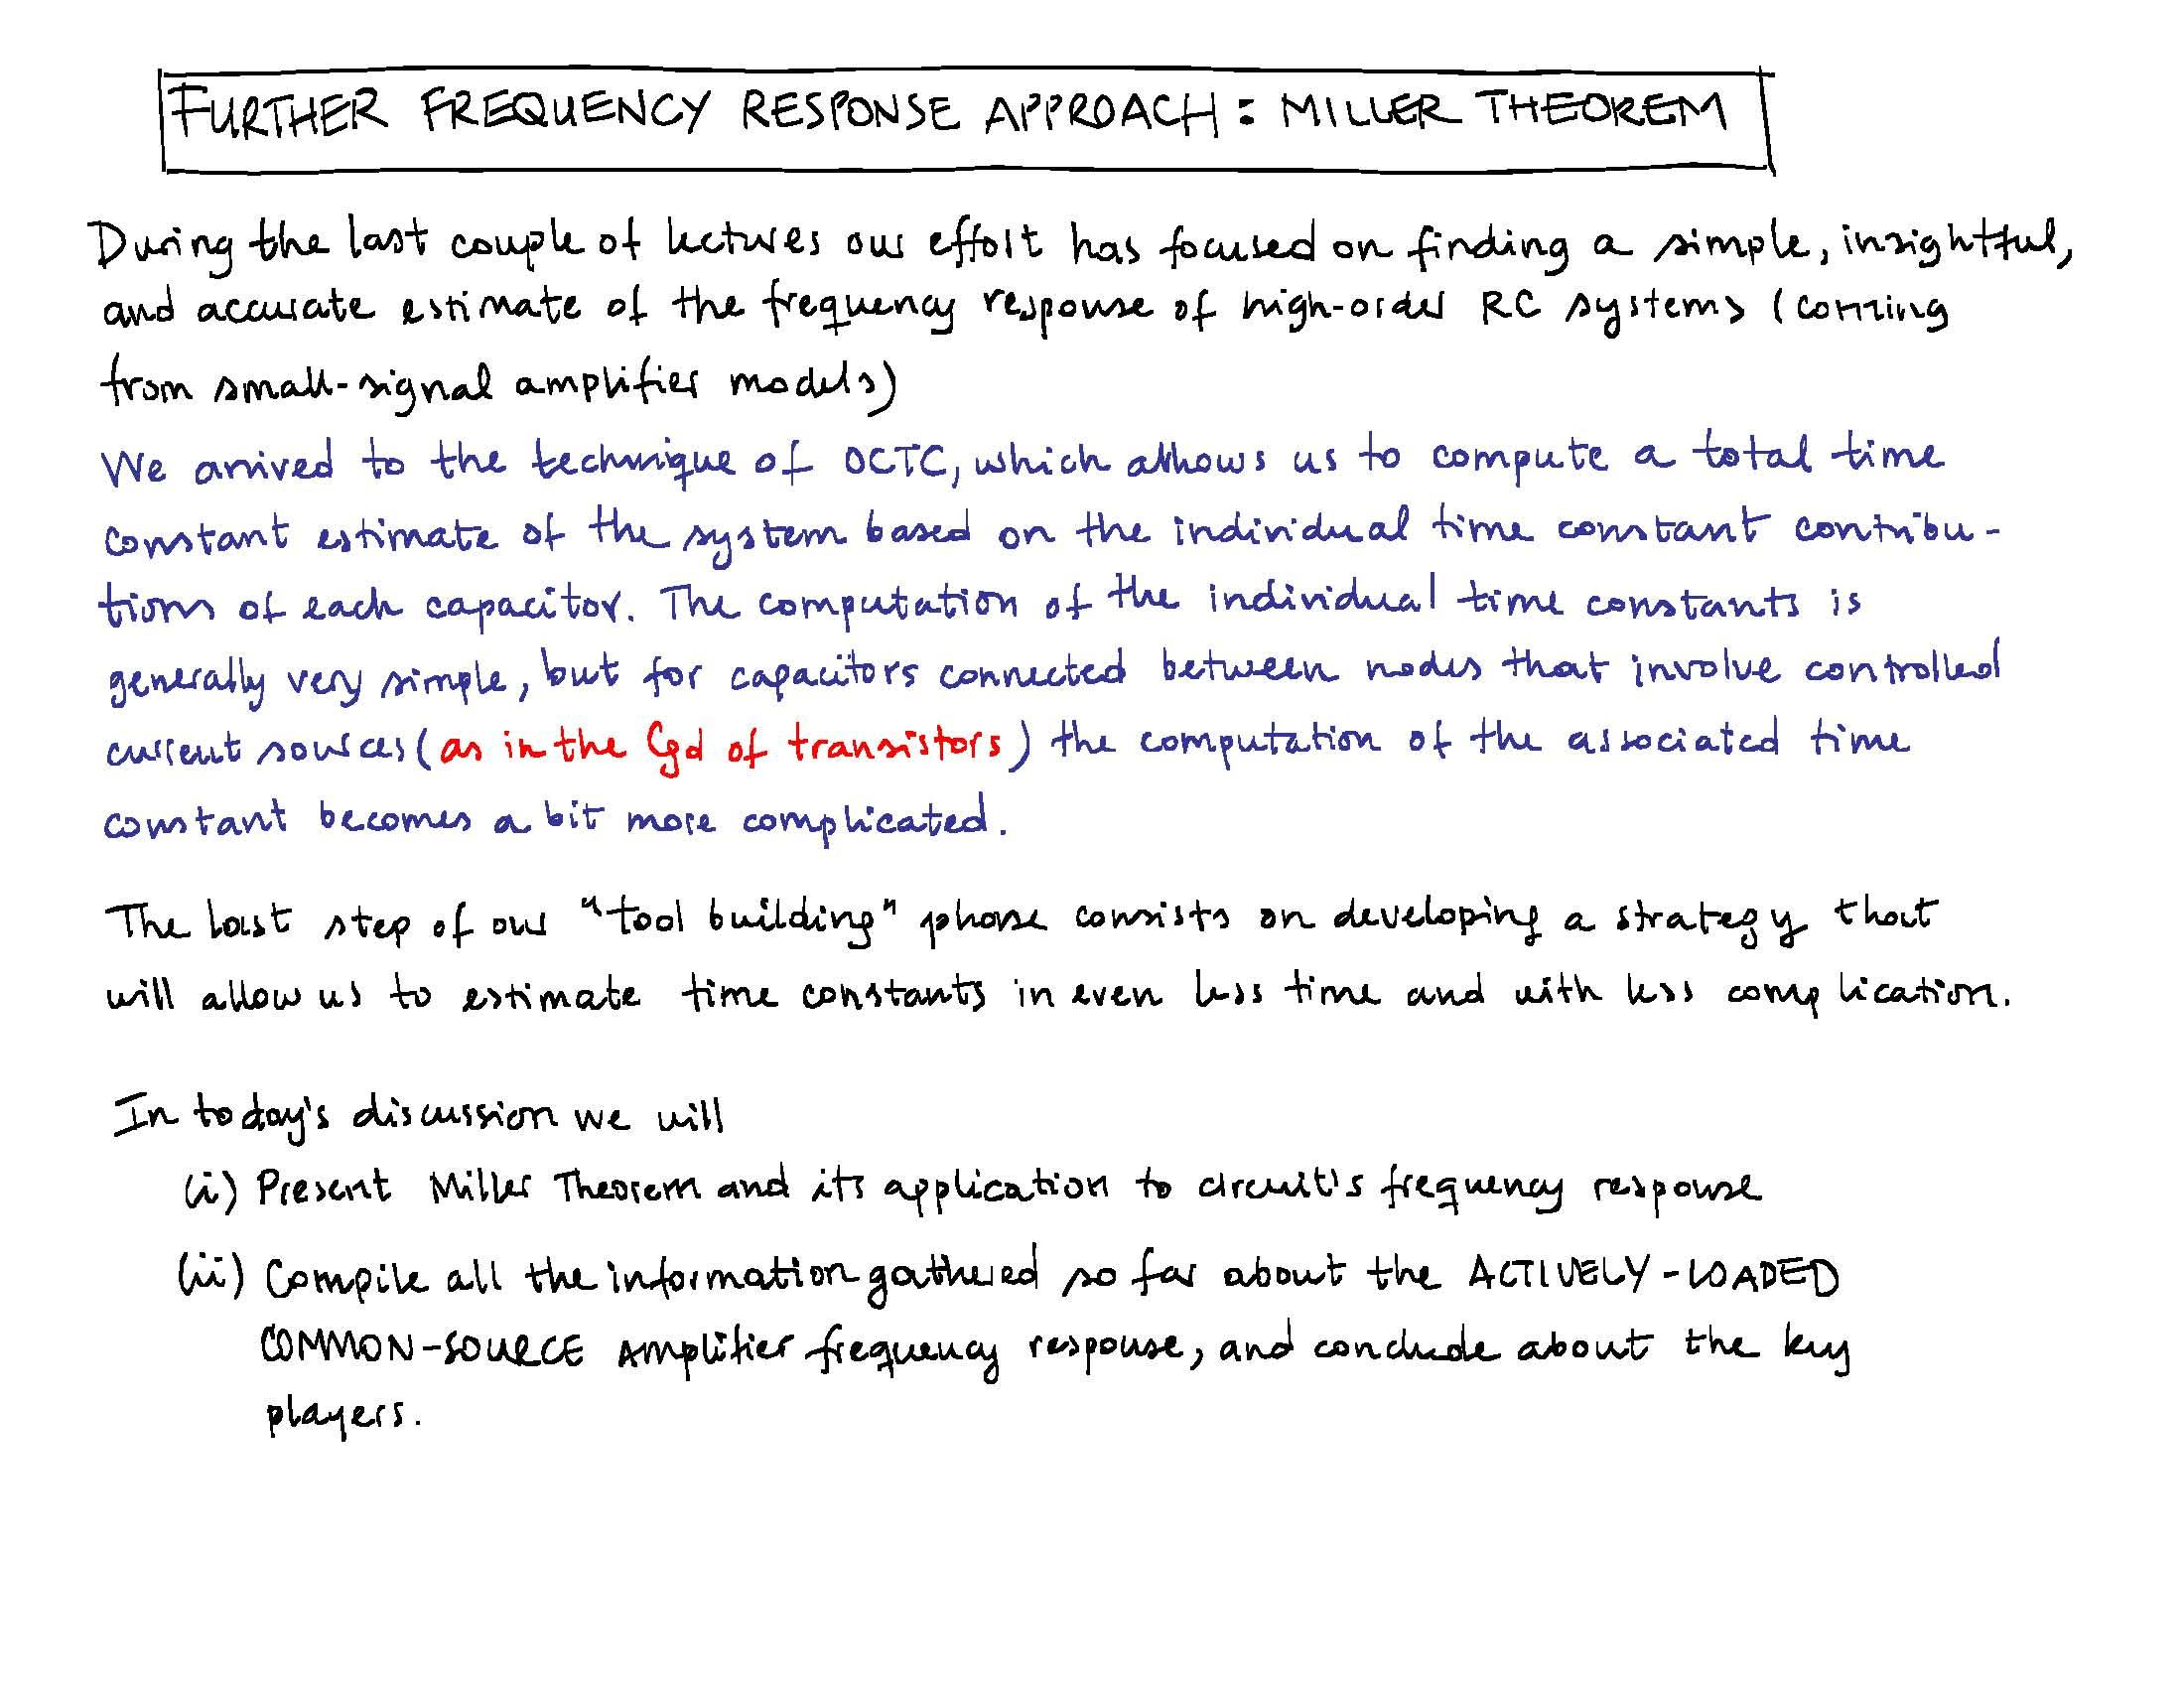 FURTHER FREQUENCY RESPONSE APPROACH: MILLER THEOREM
During the last couple of lectures our effort has focused on finding a simple, insightful,
and accurate estimate of the frequency response of high-order RC systems (coming
from small-signal amplifier models)
We arrived to the technique of OCTC, which allows us to compute a total time
constant estimate of the system based on the individual time constant contribu-
tions of each capacitor. The computation of the individual time constants is
generally very simple, but for capacitors connected between nodes that involve controlled
current sources (as in the Cgd of transistors) the computation of the associated time
constant becomes a bit more complicated.
The last step of our "tool building" phase consists on developing a strategy that
will allow us to estimate time constants in even less time and with less complication.
In today's discussion we will
(i) Present Miller Theorem and its application to circuit's frequency response
(ii) Compile all the information gathered so far about the ACTIVELY-LOADED
COMMON-SOURCE Amplifier frequency response, and conclude about the key
players.